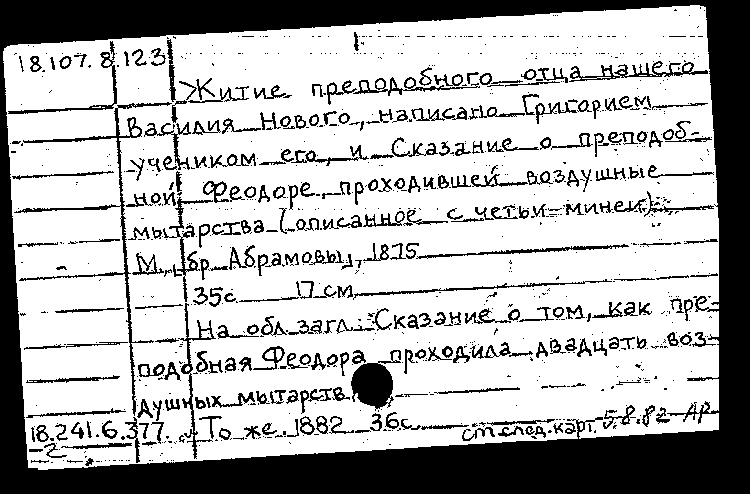 18.107.8.123
Житие преподобного отца нашего
Василия Нового, написано Григорием
учеником его, и Сказание о преподоб-
ной Феодоре, проходившей воздушные
мытарства (описанное с четьи-минеи).
М., бр Абрамовы, 1875
35с 17 см
На обл. загл.: Сказание о том, как пре-
подобная Феодора проходила двадцать воз-
душных мытарств
18.241.6.377 То же. 1882 36с.
2 см след. карт. 5.8.82 АР